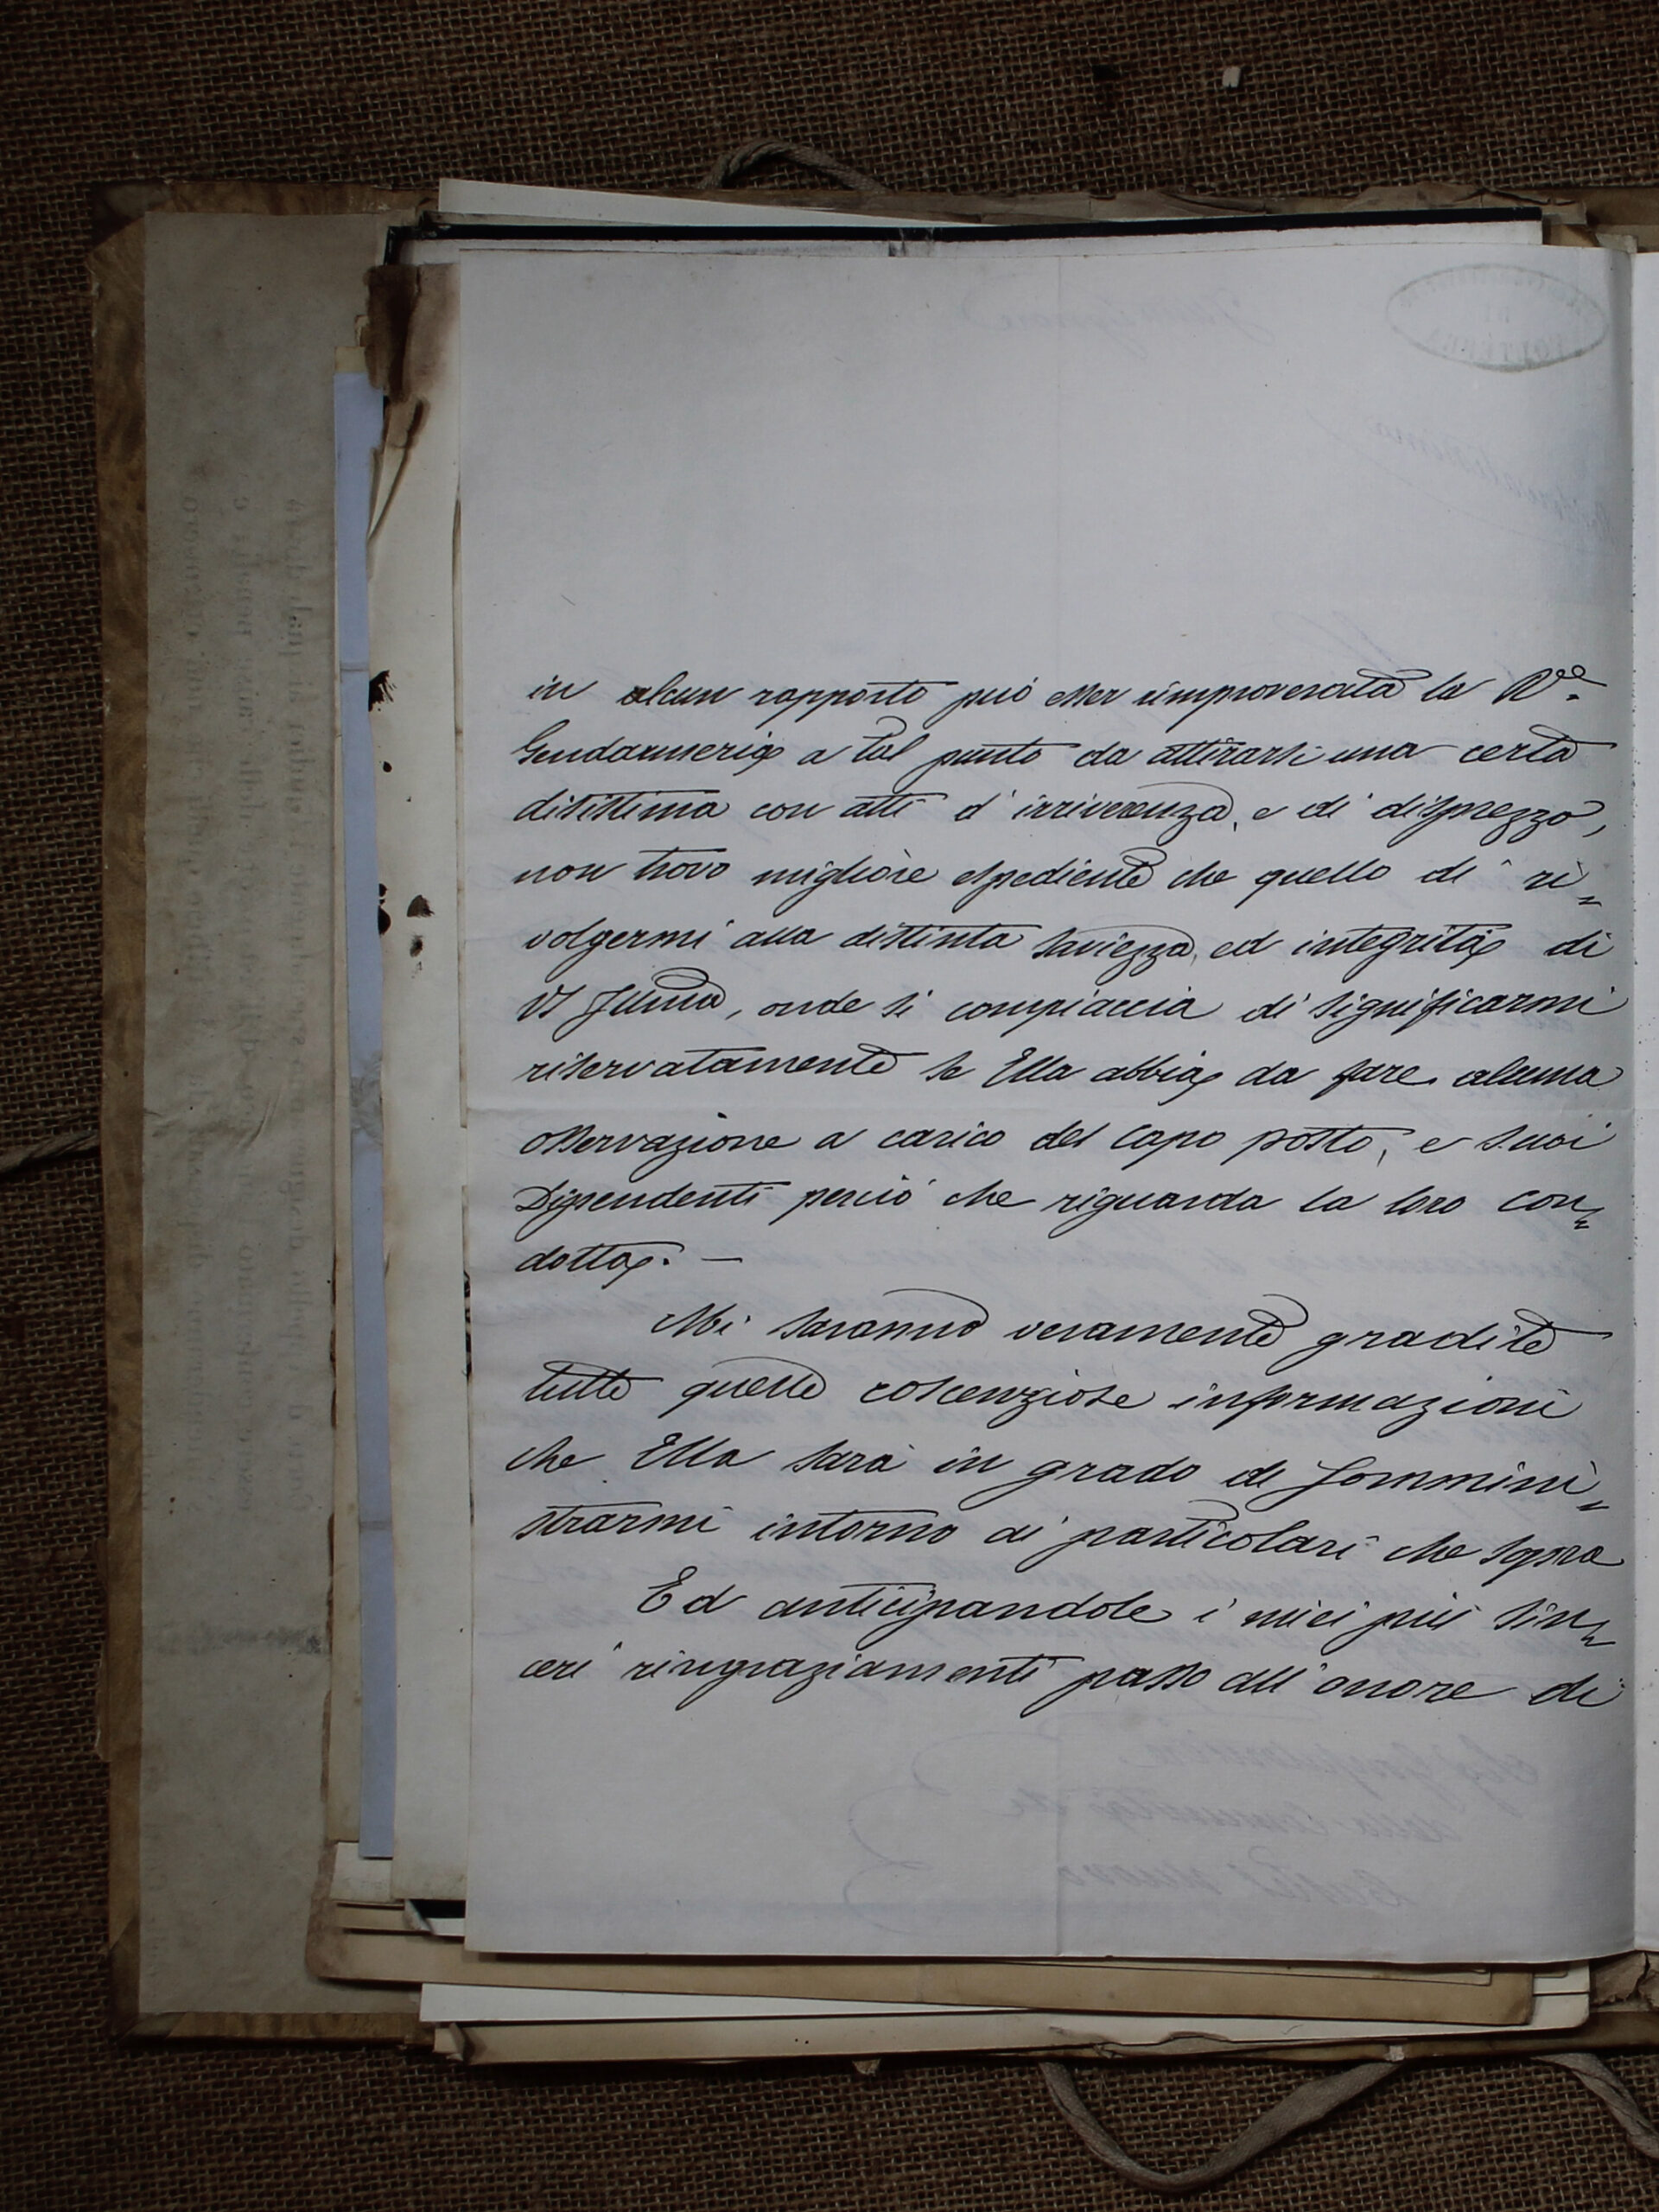 in alcun rapporto può esser rimproverata la R.le
Gendarmeria a tal punto da attirarsi una certa
disistima con atti d'irriverenza, e di disprezzo,
non trovo migliore espediente che quello di ri=
volgermi alla distinta saviezza, ed integrità di
VS Illma, onde si compiaccia di significarmi
riservatamente se Ella abbia da fare alcuna
osservazione a carico del Capo posto, e suoi
Dipendenti perciò che riguarda la loro con=
dotta. —
Mi saranno veramente gradite
tutte quelle coscenziose informazioni
che Ella sarà in grado di sommini=
strarmi intorno ai particolari che sopra
Ed anticipandole i miei più sin=
ceri ringraziamenti passo all'onore di